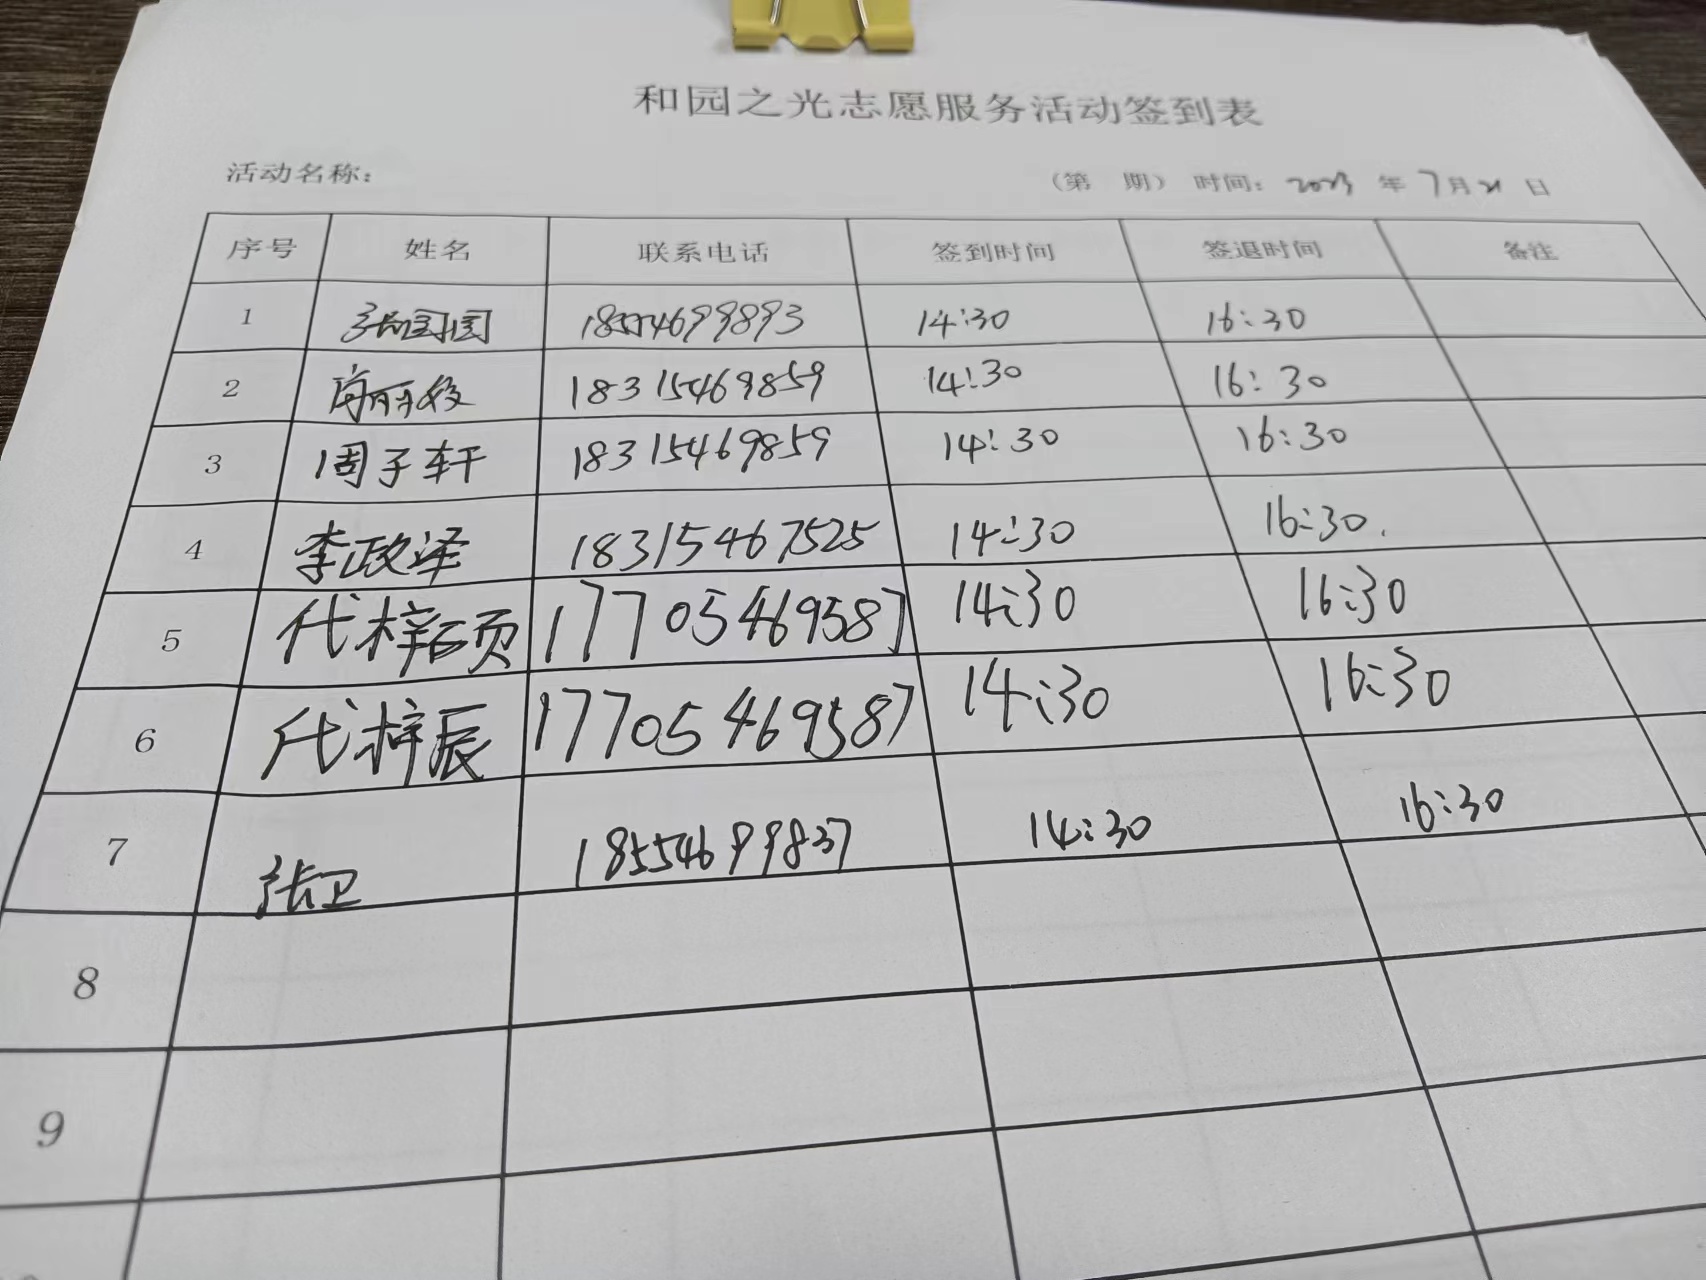 和园之光志愿服务活动签到表
活动名称： （第 期） 时间：2023 年 7月21日
序号 姓名 联系电话 签到时间 签退时间 备注
1 张园园 18554699893 14:30 16:30
2 18315469859 14:30 16:30
3 周子轩 18315469859 14:30 16:30
4 李政泽 18315467525 14:30 16:30.
5 代梓硕 17705469587 14:30 16:30
6 代梓辰 17705469587 14:30 16:30
7 张卫 18554699837 14:30 16:30
8
9